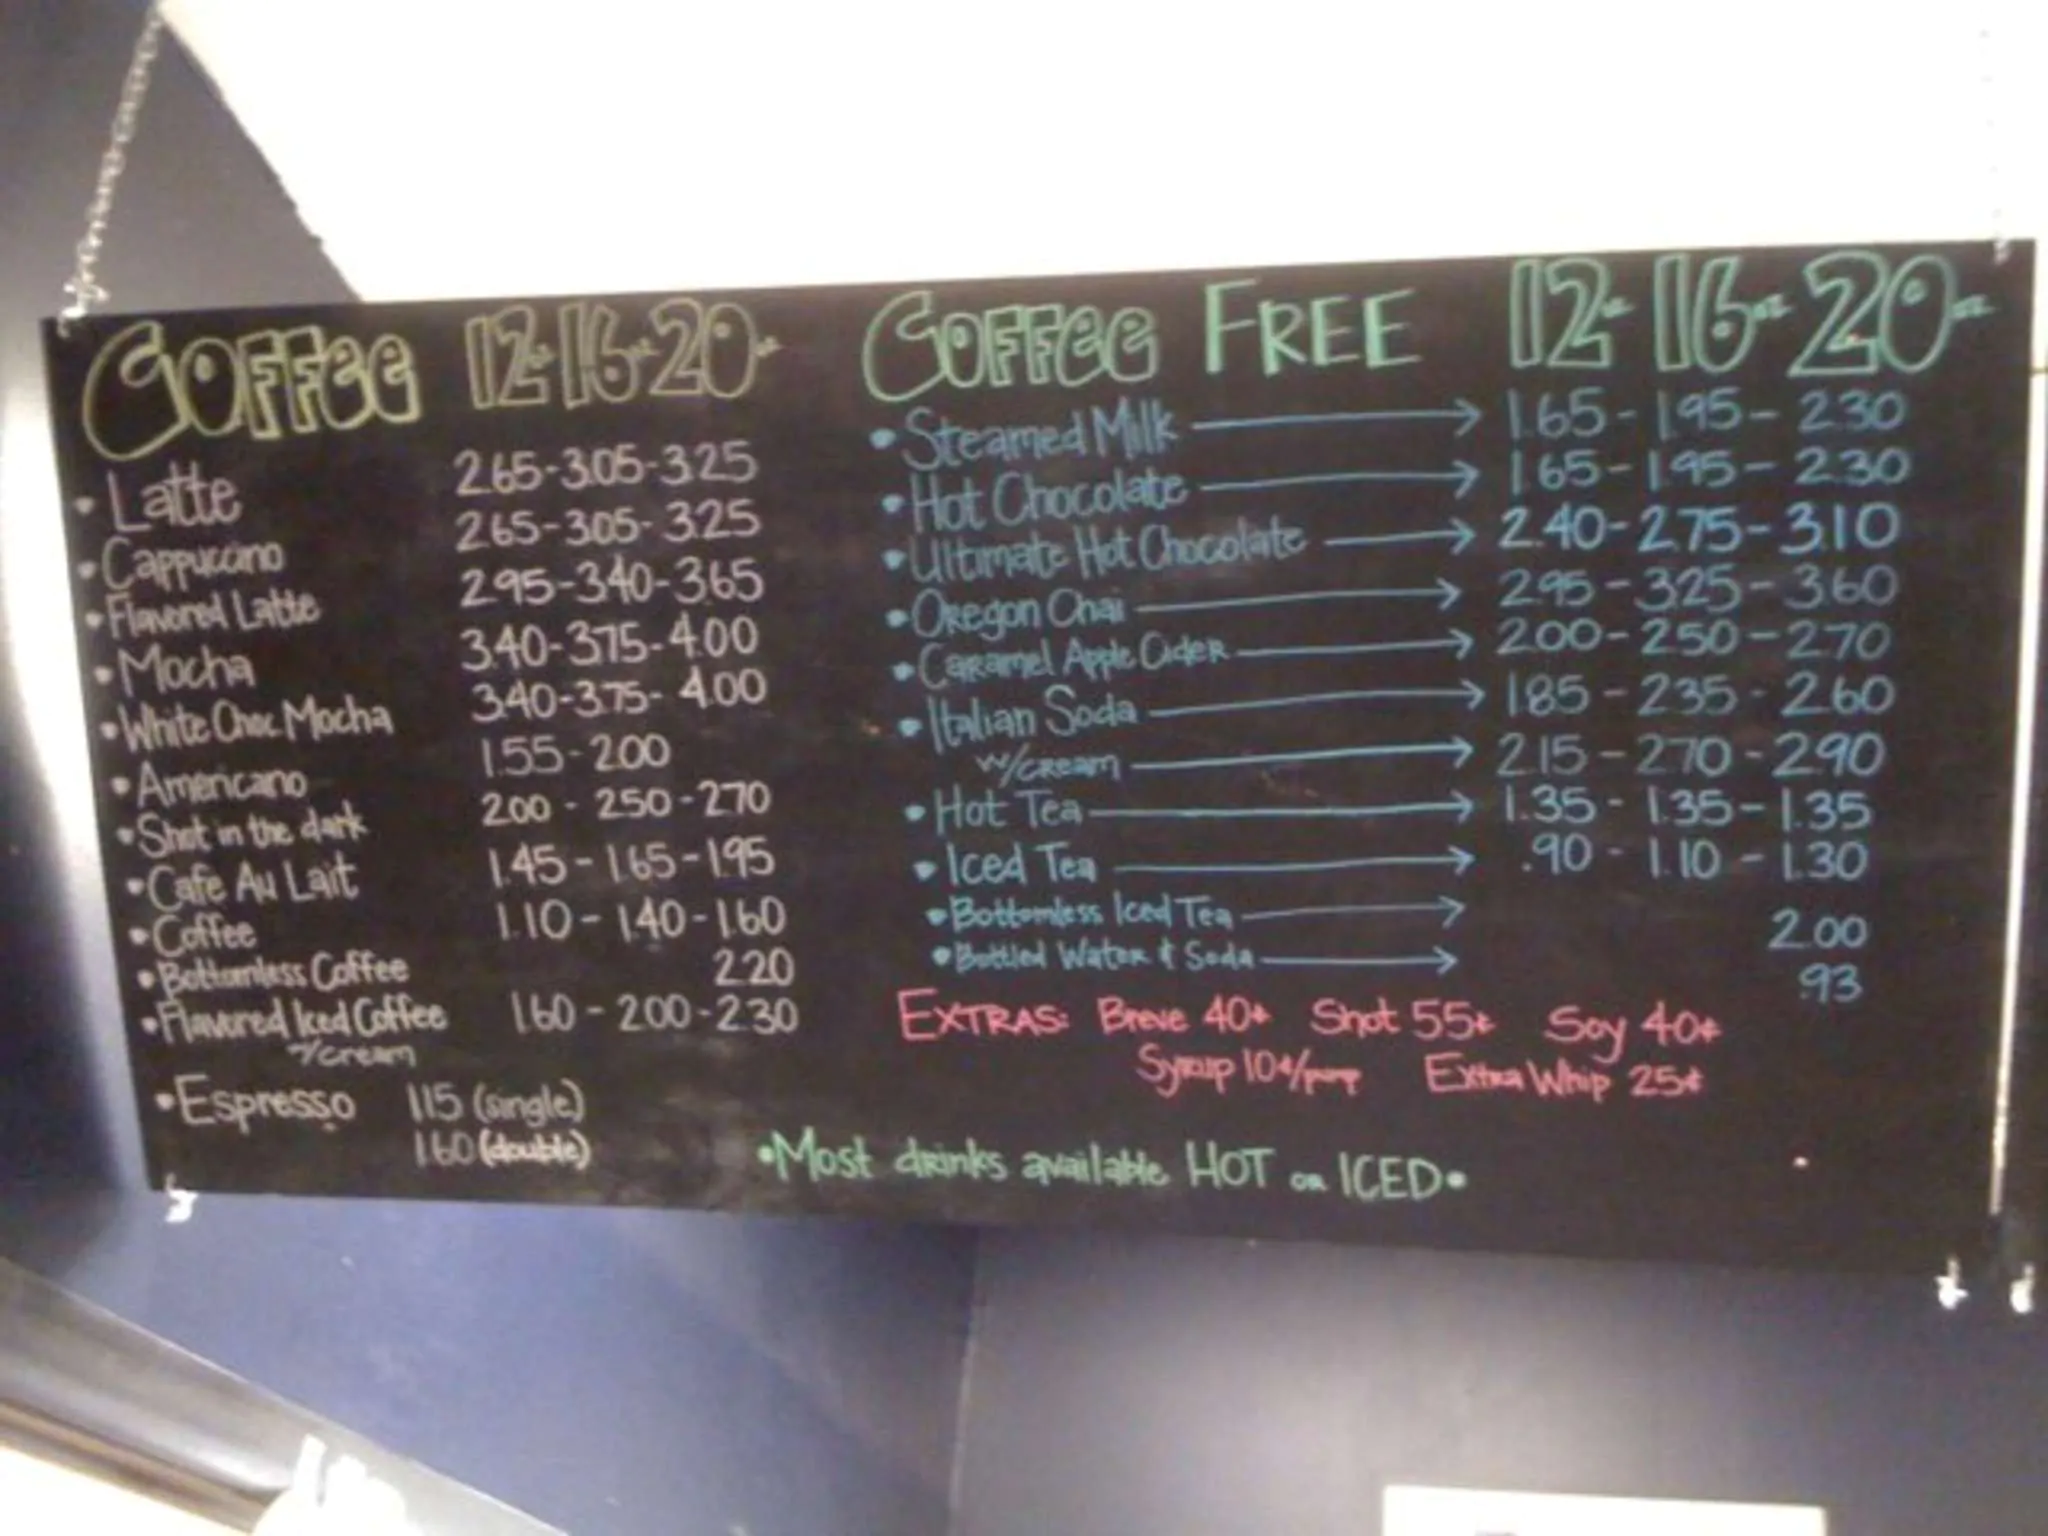 COFFEE 12oz 16oz 20oz
• Latte 2.65-3.05-3.25
• Cappuccino 2.65-3.05-3.25
• Flavored Latte 2.95-3.40-3.65
• Mocha 3.40-3.75-4.00
• White Choc. Mocha 3.40-3.75-4.00
• Americano 1.55-2.00
• Shot in the dark 2.00-2.50-2.70
• Cafe Au Lait 1.45-1.65-1.95
• Coffee 1.10-1.40-1.60
• Bottomless Coffee 2.20
• Flavored Iced Coffee 1.60-2.00-2.30
w/cream
• Espresso 1.15 (single)
1.60 (double)
COFFEE FREE 12oz 16oz 20oz
• Steamed Milk → 1.65-1.95-2.30
• Hot Chocolate → 1.65-1.95-2.30
• Ultimate Hot Chocolate → 2.40-2.75-3.10
• Oregon Chai → 2.95-3.25-3.60
• Caramel Apple Cider → 2.00-2.50-2.70
• Italian Soda → 1.85-2.35-2.60
w/cream → 2.15-2.70-2.90
• Hot Tea → 1.35-1.35-1.35
• Iced Tea → .90-1.10-1.30
• Bottomless Iced Tea → 2.00
• Bottled Water & Soda → .93
EXTRAS: Breve 40¢ Shot 55¢ Soy 40¢
Syrup 10¢/pump Extra Whip 25¢
•Most drinks available HOT or ICED•